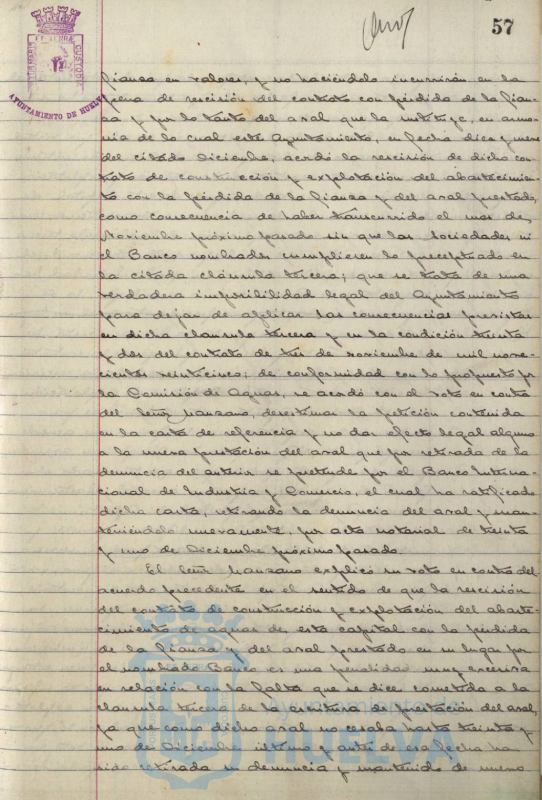 57
AYUNTAMIENTO DE HUELVA
fianza en valores, y no haciéndolo incurrirán en la
pena de rescisión del contrato con pérdida de la fian-
za y por lo tanto del aval que la sustituye, en armo-
nía de lo cual este Ayuntamiento, en fecha diez y nueve
del citado Diciembre, acordó la rescisión de dicho con-
trato de construcción y explotación del abastecimien-
to con la pérdida de la fianza y del aval prestado,
como consecuencia de haber transcurrido el mes de
Noviembre próximo pasado sin que las Sociedades ni
el Banco nombrados cumplieren lo preceptuado en
la citada cláusula tercera; que se trata de una
verdadera imposibilidad legal del Ayuntamiento
para dejar de aplicar las consecuencias previstas
en dicha clausula tercera y en la condición treinta
y dos del contrato de tres de noviembre de mil nove-
cientos veinticinco; de conformidad con lo propuesto pr
la Comisión de Aguas, se acordó con el voto en contra
del Señr Manzano, desestimar la petición contenida
en la carta de referencia y no dar efecto legal alguno
a la nueva prestación del aval que por retirada de la
denuncia del anterior se pretende por el Banco Interna-
cional de Industria y Comercio, el cual ha ratificado
dicha carta, retirando la denuncia del aval y man-
teniéndolo nuevamente, por acta notarial de treinta
y uno de Diciembre próximo pasado.
El Señr Manzano explicó su voto en contra del
acuerdo precedente en el sentido de que la rescisión
del contrato de construcción y explotación del abaste-
cimiento de aguas de esta capital con la pérdida
de la fianza y del aval prestado en su lugar por
el nombrado Banco es una penalidad muy excesiva
en relación con la falta que se dice cometida a la
clausula tercera de la escritura de prestación del aval,
ya que como dicho aval no cesaba hasta treinta y
uno de Diciembre último y antes de esa fecha ha
sido retirada su denuncia y mantenido de nuevo
HUELVA